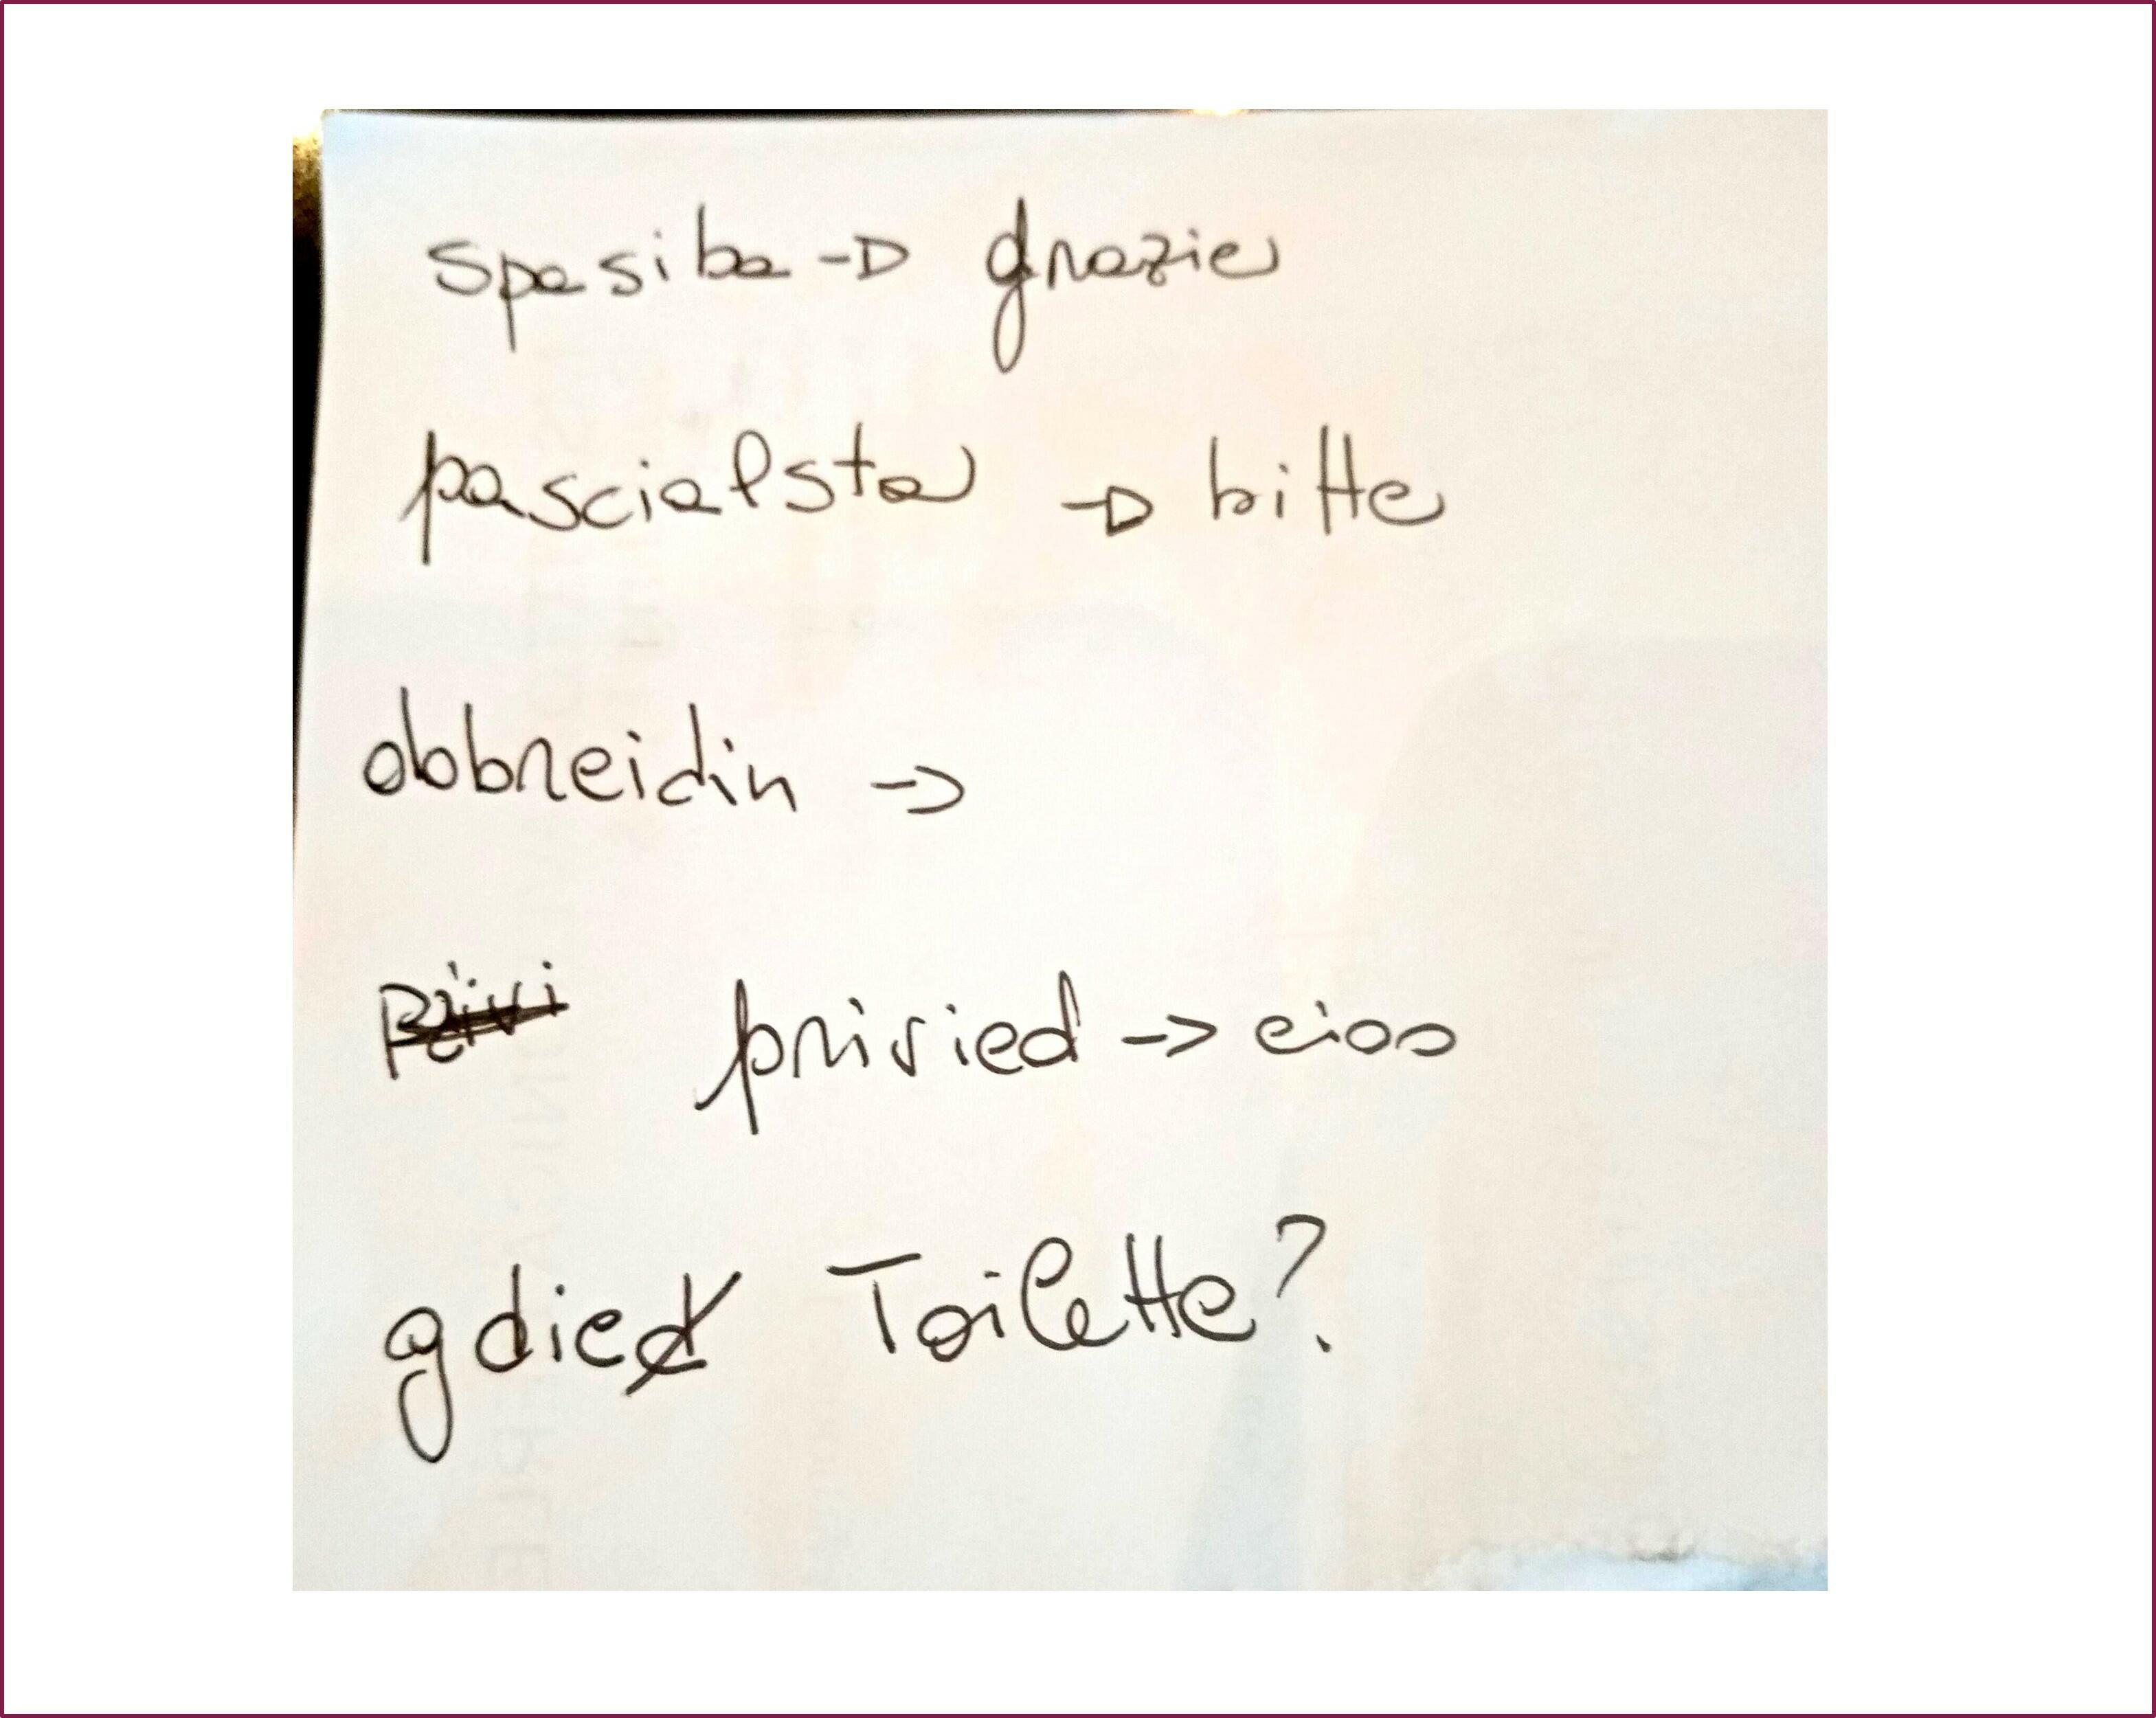 spasiba -> grazie
pascialsta -> bitte
dobreidin ->
privied -> ciao
gdie Toilette?